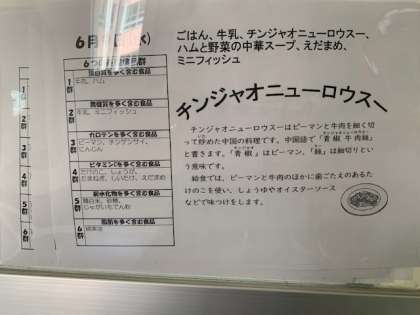 6月
水)
ごはん、牛乳、チンジャオニューロウスー、
ハムと野菜の中華スープ、えだまめ、
ミニフィッシュ
チンジャオニューロウスー
チンジャオニューロウスーはピーマンと牛肉を細く切
って炒めた中国の料理です。中国語で「青椒牛肉絲」
と書きます。「青椒」はピーマン、「絲」は細切りとい
う意味です。
給食では、ピーマンと牛肉のほかに歯ごたえのあるた
けのこを使い、しょうゆやオイスターソース
などで味つけをします。
6つの
群
1群
蛋白質を多く含む食品
牛肉、ハム
2群
無機質を多く含む食品
牛乳、ミニフィッシュ
3群
カロテンを多く含む食品
ピーマン、チンゲンサイ、
にんじん
4群
ビタミンCを多く含む食品
たけのこ、しょうが、
たまねぎ、しいたけ、えだまめ
5群
炭水化物を多く含む食品
精白米、砂糖、
じゃがいもでんぷん
6群
脂肪を多く含む食品